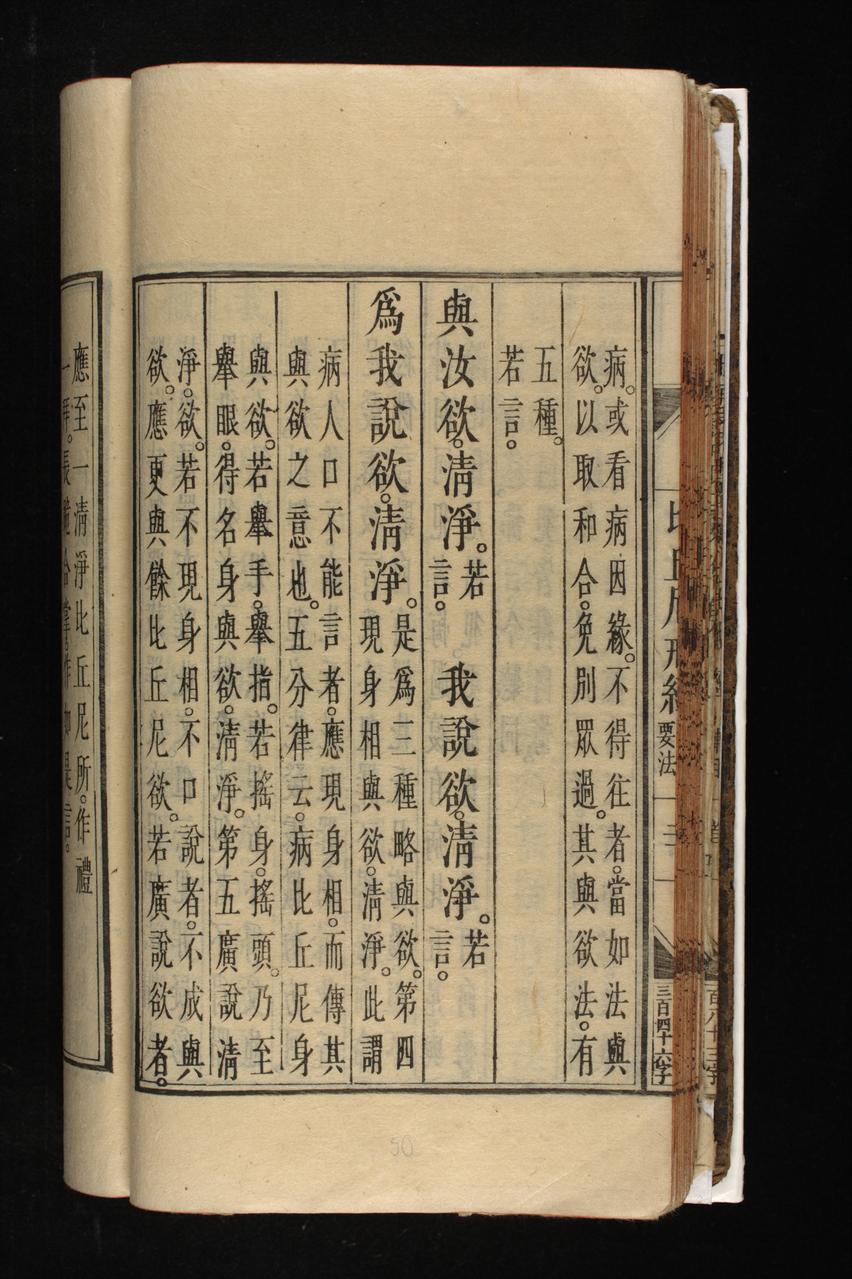 要法
三百四十六字
病。或看病因緣。不得往者。當如法與
欲。以取和合。免別眾過。其與欲法。有
五種。
若言。
與汝欲。清淨。若言。 我說欲。清淨。若言。
爲我說欲。清淨。是爲三種略與欲。第四
現身相與欲。清淨。此謂
病人口不能言者。應現身相。而傳其
與欲之意也。五分律云。病比丘尼身
與欲。若舉手。舉指。若搖身。搖頭。乃至
舉眼。得名身與欲。清淨。第五廣說清
淨。欲。若不現身相。不口說者。不成與
欲。應更與餘比丘尼欲。若廣說欲者。
應至一清淨比丘尼所。作禮
一拜。長跪合掌。作如是言。
50